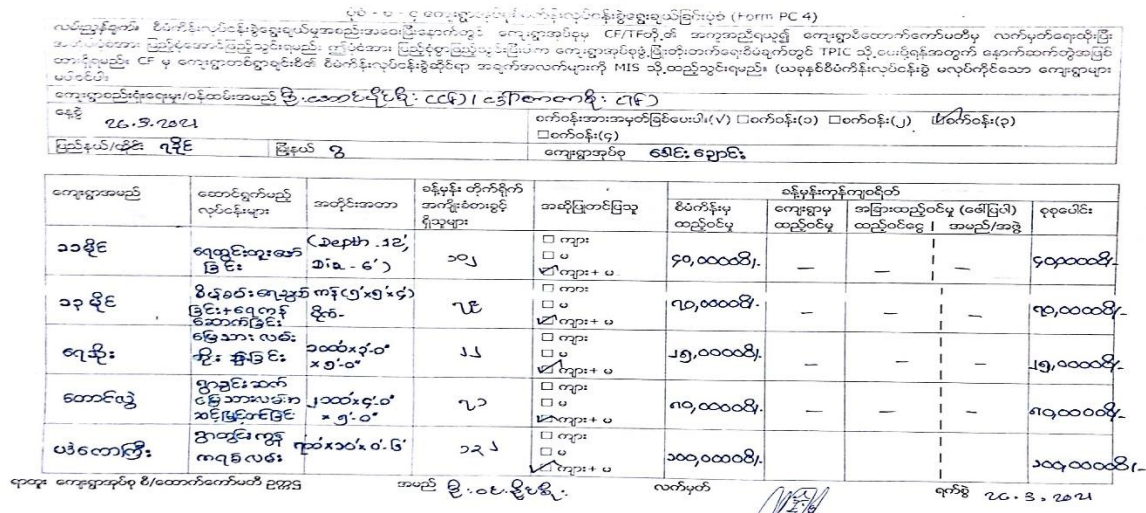 ပုံစံ - စ - ၄ ကျေးရွာအုပ်စု စီမံကိန်းလုပ်ငန်းခွဲရွေးချယ်ခြင်းပုံစံ (Form PC 4)
လမ်းညွှန်ချက်။ စီမံကိန်းလုပ်ငန်းခွဲရွေးချယ်မှုအစည်းအဝေးပြီးနောက်တွင် ကျေးရွာအုပ်စုမှ CF/TFတို့၏ အကူအညီရယူ၍ ကျေးရွာစီထောက်ကော်မတီမှ လက်မှတ်ရေးထိုးပြီး
ပြည့်စုံအောင်ဖြည့်သွင်းရမည်။ ဤပုံစံအား ပြည့်စုံစွာဖြည့်သွင်းပြီးပါက ကျေးရွာအုပ်စုဖွံ့ဖြိုးတိုးတက်ရေးစီမံချက်တွင် TPIC သို့ပေးပို့ရန်အတွက် နောက်ဆက်တွဲအဖြစ်
ထားရှိရမည်။ CF မှ ကျေးရွာတစ်ရွာချင်းစီ၏ စီမံကိန်းလုပ်ငန်းခွဲဆိုင်ရာ အချက်အလက်များကို MIS သို့ထည့်သွင်းရမည်။ (ယခုနှစ်စီမံကိန်းလုပ်ငန်းခွဲ မလုပ်ကိုင်သော ကျေးရွာများ
မပါဝင်ပါ။
ကျေးရွာစည်းရုံးရေးမှူး/ဝန်ထမ်းအမည် (CF) / (TF)
နေ့စွဲ 26.3.2021 စက်ဝန်းအားအမှတ်ခြစ်ပေးပါ။(√) □စက်ဝန်း(၁) □စက်ဝန်း(၂) ☑စက်ဝန်း(၃)
□စက်ဝန်း(၄)
ပြည်နယ်/တိုင်း ရခိုင် မြို့နယ် ဂွ ကျေးရွာအုပ်စု ခေါင်းချောင်း
ကျေးရွာအမည် ဆောင်ရွက်မည့် လုပ်ငန်းများ အတိုင်းအတာ ခန့်မှန်း တိုက်ရိုက် အကျိုးခံစားခွင့် ရှိသူများ အဆိုပြုတင်ပြသူ ခန့်မှန်းကုန်ကျစရိတ်
စီမံကိန်းမှ ထည့်ဝင်မှု ကျေးရွာမှ ထည့်ဝင်မှု အခြားထည့်ဝင်မှု (ဖော်ပြပါ) ထည့်ဝင်ငွေ | အမည်/အဖွဲ့ စုစုပေါင်း
၁၁မိုင် ရေတွင်းတူးဖော်ခြင်း (Depth - 12', Dia - 6') ၁၀၂ □ ကျား □ မ ☑ ကျား+ မ ၄၀,၀၀၀၀ိ/- – – – ၄၀၀၀၀၀ိ/-
၁၃ မိုင် စိမ့်စမ်းရေသွယ်ခြင်း+ရေကန်ဆောက်ခြင်း ကန်(၅'x၅'x၄') ၇၉ □ ကျား □ မ ☑ ကျား+ မ ၇၀,၀၀၀၀ိ/- – – – ၇၀,၀၀၀၀ိ/-
ရေဆိုး မြေသားလမ်း ၁၀၀၀'x၃'-၀" x ၅'-၀" ၂၂ □ ကျား □ မ ☑ ကျား+ မ ၂၅,၀၀၀၀ိ/- – – – ၂၅,၀၀၀၀ိ/-
တောင်လွဲ ရွာချင်းဆက် မြေသားလမ်းအဆင့်မြှင့်တင်ခြင်း ၂၁၀၀'x၄'-၀" x ၅'-၀" ၇၁ □ ကျား □ မ ☑ ကျား+ မ ၈၀,၀၀၀၀ိ/- – – – ၈၀,၀၀၀၀ိ/-
ပဒဲကောကြီး ရွာတွင်းကွန်ကရစ်လမ်း ၇၀၀'x၁၀'x ၀'-၆" ၁၃၂ □ ကျား □ မ ☑ ကျား+ မ ၁၀၀,၀၀၀၀ိ/- ၁၀၀,၀၀၀၀ိ/-
ရာထူး ကျေးရွာအုပ်စု စီ/ထောက်ကော်မတီ ဥက္ကဋ္ဌ အမည် လက်မှတ် ရက်စွဲ 26.3.2021